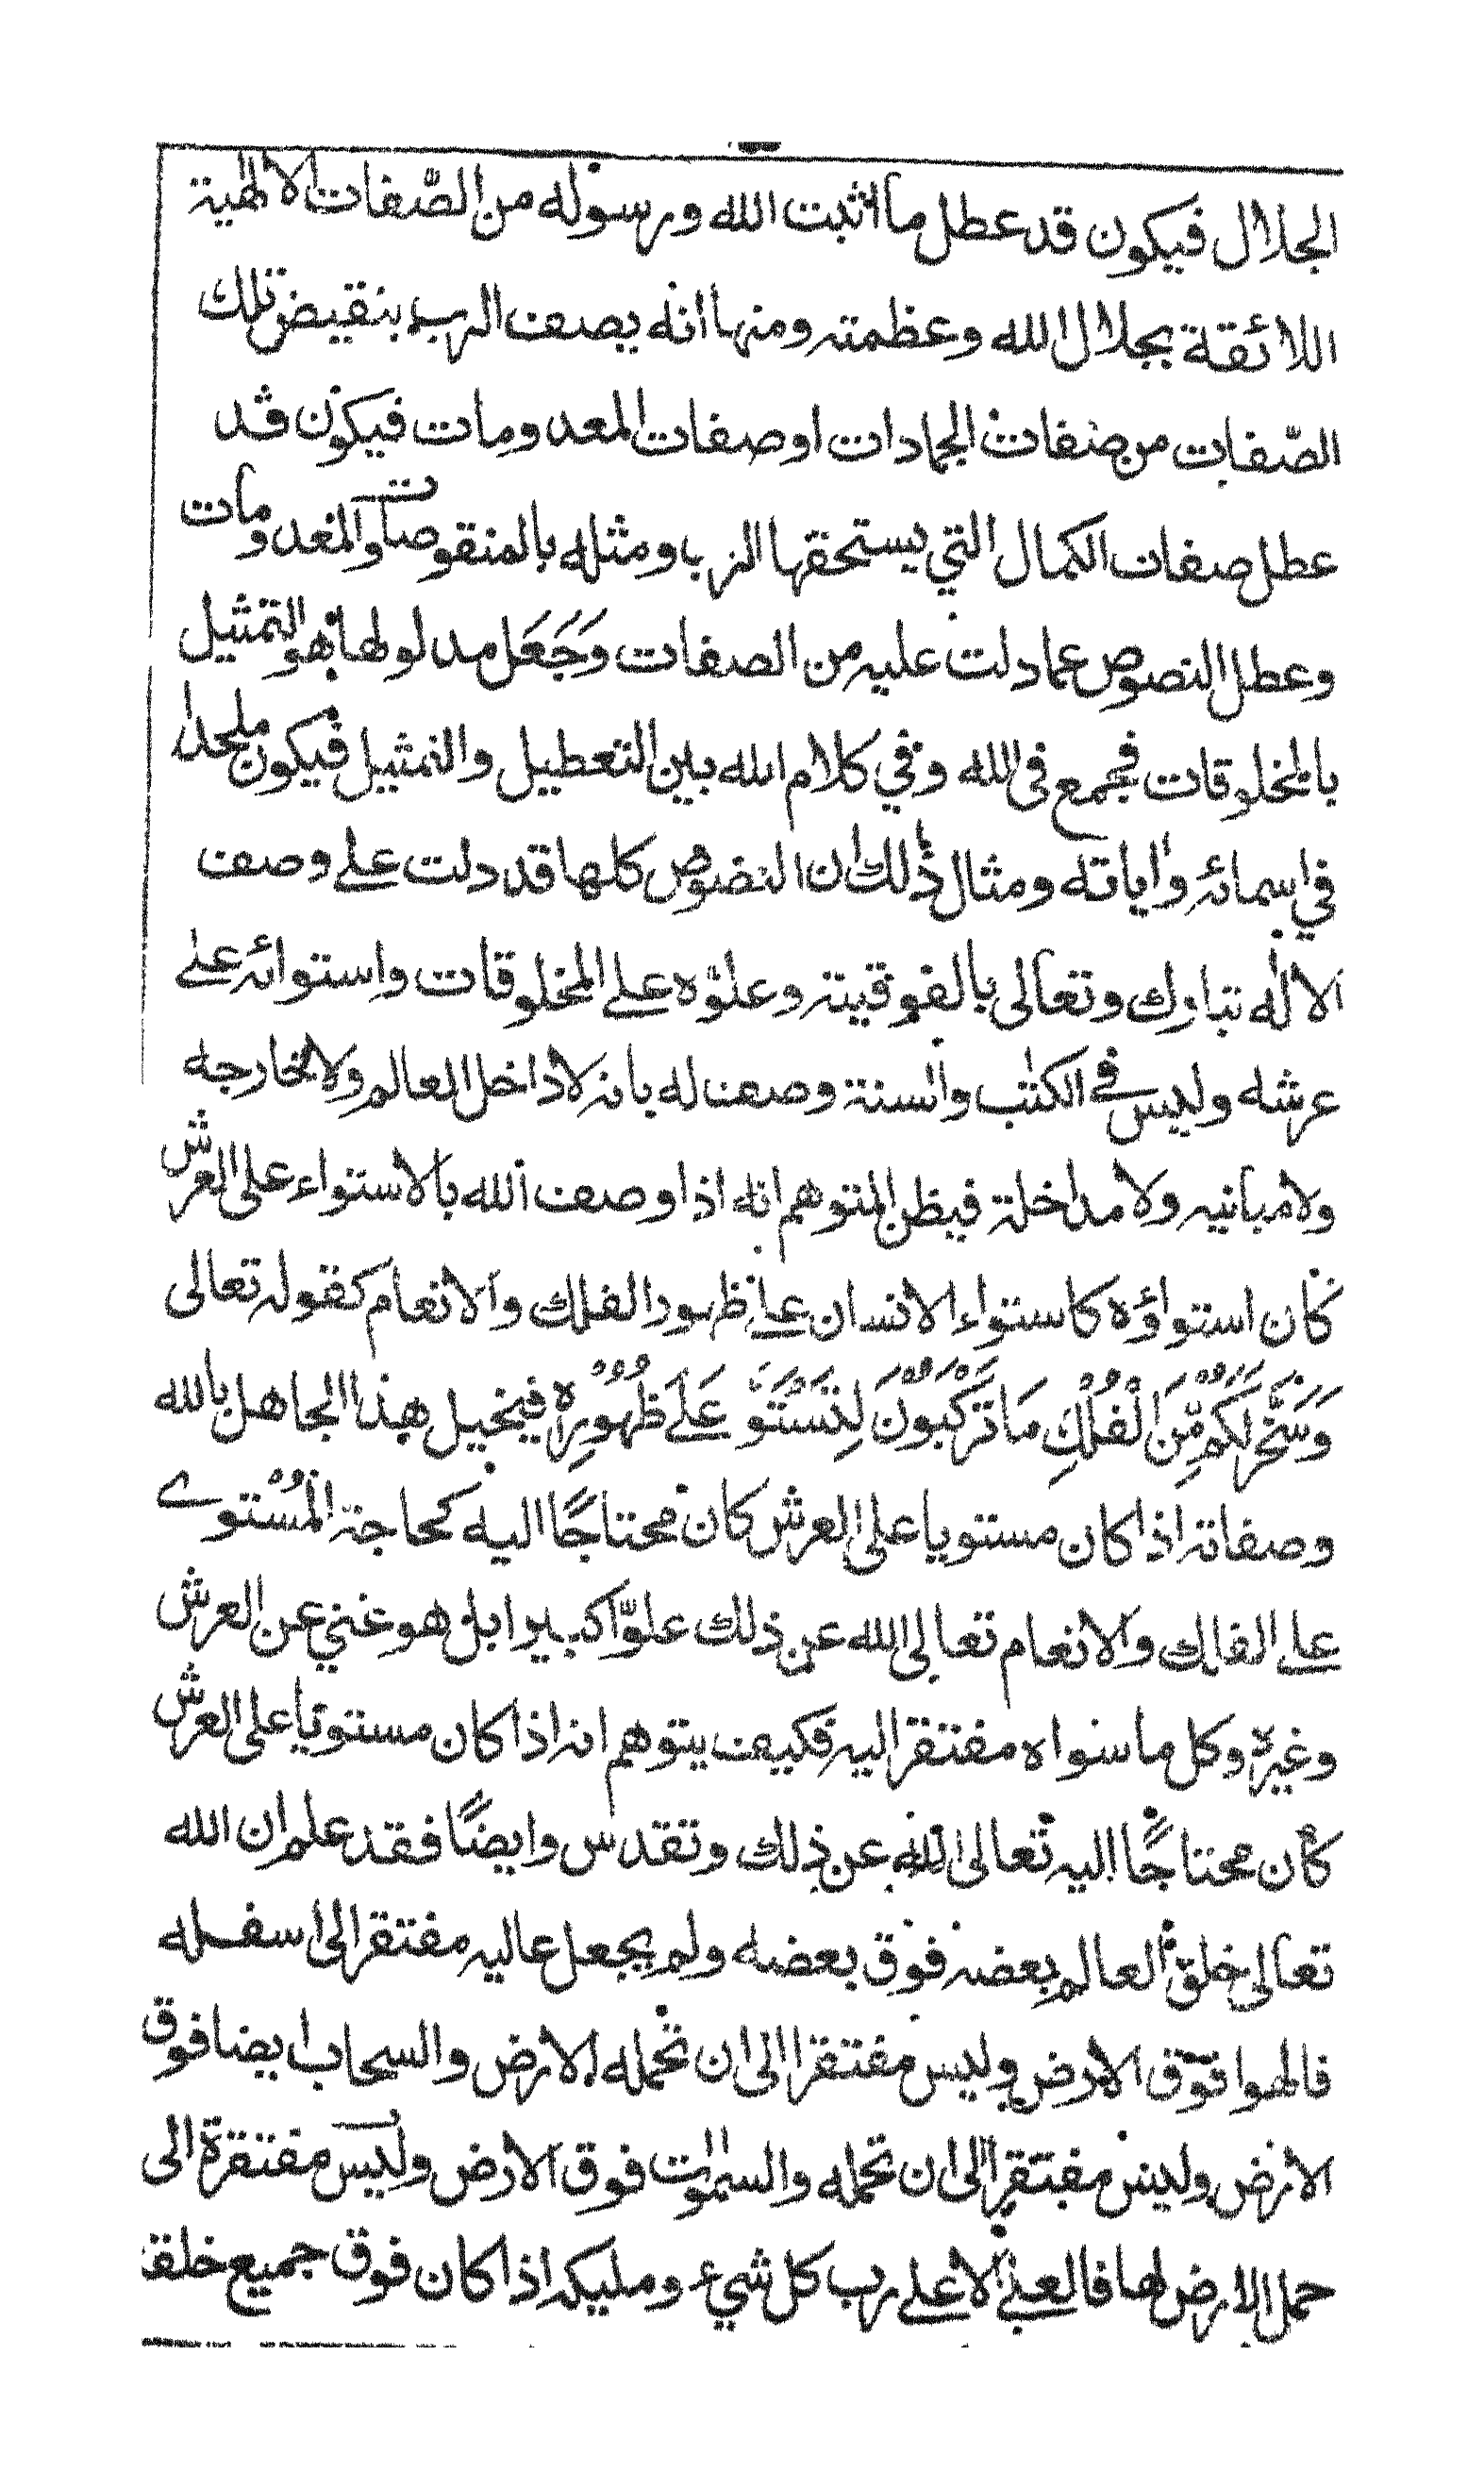 الجلال فيكون قد عطل ما اثبت الله ورسوله من الصّفات الالٰهية
اللائقة بجلال الله وعظمته ومنها انه يصف الرب بنقيض تلك
الصّفات من صفات الجمادات او صفات المعدومات فيكون قد
عطل صفات الكمال التي يستحقها الرب ومثله بالمنقوصات والمعدومات
وعطل النصوص عما دلت عليه من الصفات وَجَعَل مدلولها هو التمثيل
بالمخلوقات فجمع في الله وفي كلام الله بين التعطيل والتمثيل فيكون ملحدا
في اسمائه واٰياته ومثال ذٰلك ان النصوص كلها قد دلت علے وصف
الالٰه تبارك وتعالى بالفوقيته وعلوّه علے المخلوقات واستوائه علے
عرشه وليس في الكتٰب والسنة وصف له بانه لا داخل العالم ولا خارجه
ولا مبانيه ولا مداخلة فيظن المتوهم انه اذا وصف الله بالاستواء على العرش
كان استواؤه كاستواء الانسان علے ظهور الفلك والانعام كقوله تعالى
وَسَخَّرَ لَكُمْ مِّنَ الْفُلْكِ مَا تَرْكَبُوْنَ لِتَسْتَوٗ عَلَے ظُهُوْرِهٖ فيخيل هذا الجاهل بالله
وصفاته اذا كان مستويا على العرش كان محتاجًا اليه كحاجة المُسْتوے
علے الفلك والانعام تعالى الله عن ذلك علوّا كبيرا بل هو غني عن العرش
وغيره وكل ما سواه مفتقر اليه فكيف يتوهم انه اذا كان مستويا على العرش
كان محتاجًا اليه تعالى الله عن ذلك وتقدس وايضًا فقد علم ان الله
تعالى خلق العالم بعضه فوق بعضه ولم يجعل عاليه مفتقرا الى اسفله
فالهوا فوق الارض وليس مفتقرا الى ان تحمله الارض والسحاب ايضا فوق
الارض وليس مفتقرا الى ان تحمله والسمٰوات فوق الارض وليس مفتقرة الى
حمل الارض لها فالعلے الاعلے رب كل شيء ومليكه اذا كان فوق جميع خلقه